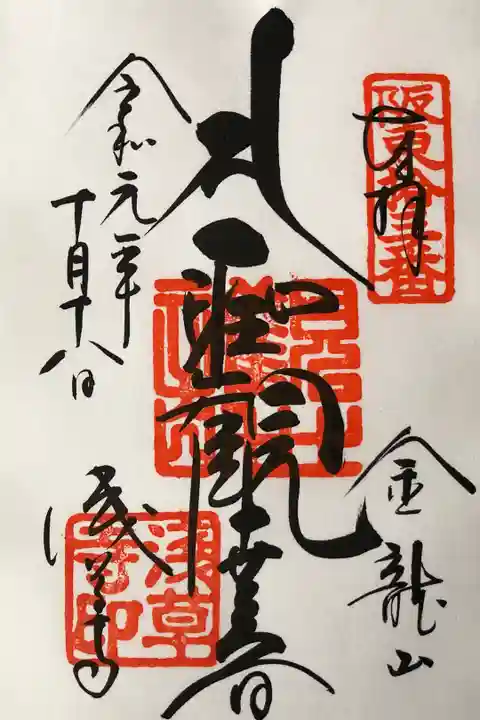 奉拝
阪東拾三番
金龍山
聖観世音
令和元年
十月十八日
浅草寺
浅草寺印